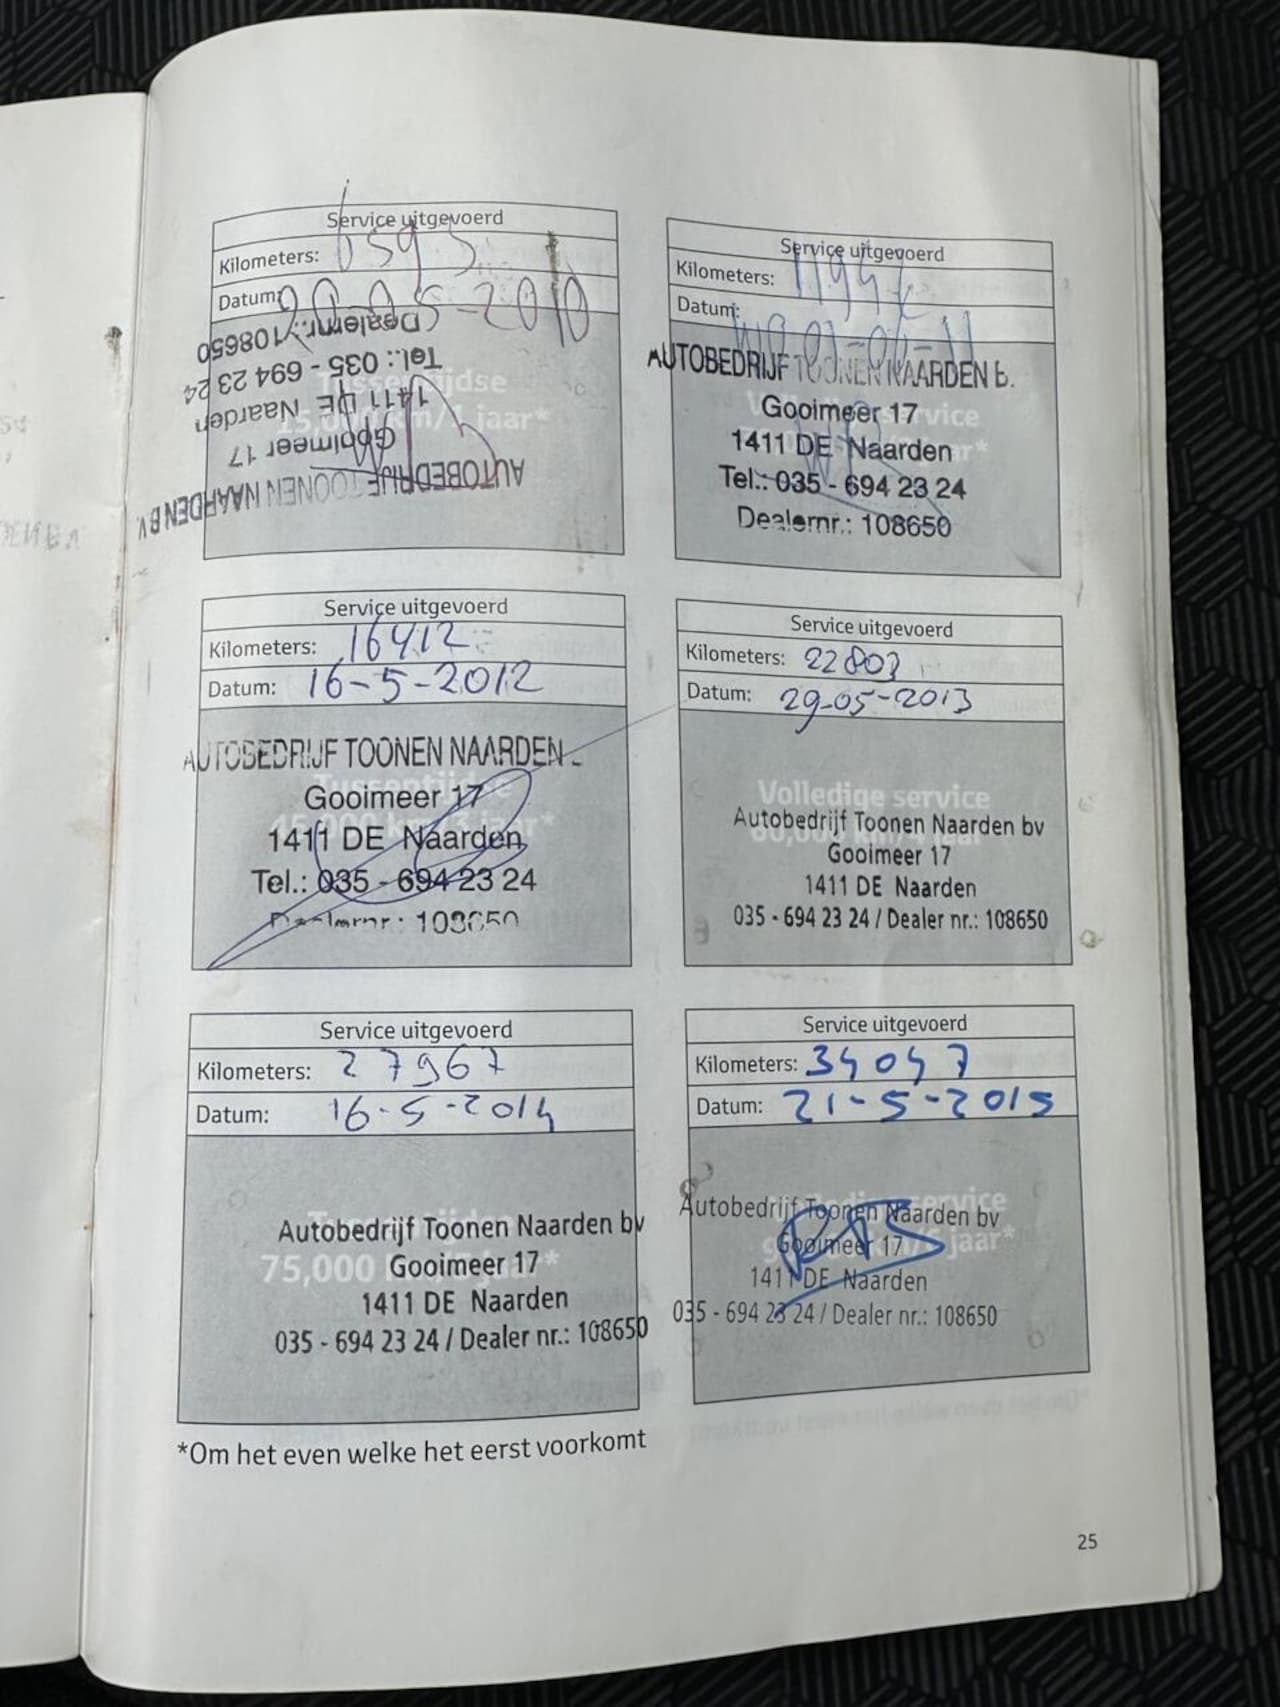 Service uitgevoerd
Kilometers: 6595
Datum: -05-2010
Dealernr.: 108650
Tel.: 035 - 694 23 24
1411 DE Naarden
Gooimeer 17
AUTOBEDRIJF TOONEN NAARDEN B.V.
Tussentijdse
15,000 km/1 jaar*
Service uitgevoerd
Kilometers:
Datum:
AUTOBEDRIJF TOONEN NAARDEN b.
Gooimeer 17
1411 DE Naarden
Tel.: 035 - 694 23 24
Dealernr.: 108650
Service uitgevoerd
Kilometers: 16412
Datum: 16-5-2012
AUTOBEDRIJF TOONEN NAARDEN
Tussentijdse
Gooimeer 17
45,000 km/3 jaar*
1411 DE Naarden
Tel.: 035 - 694 23 24
Dealernr.: 108650
Service uitgevoerd
Kilometers: 22803
Datum: 29-05-2013
Volledige service
Autobedrijf Toonen Naarden bv
60,000 km/4 jaar
Gooimeer 17
1411 DE Naarden
035 - 694 23 24 / Dealer nr.: 108650
Service uitgevoerd
Kilometers: 27967
Datum: 16-5-2014
Autobedrijf Toonen Naarden bv
75,000
Gooimeer 17
1411 DE Naarden
035 - 694 23 24 / Dealer nr.: 108650
Service uitgevoerd
Kilometers: 34047
Datum: 21-5-2015
Autobedrijf Toonen Naarden bv
Gooimeer 17
1411 DE Naarden
035 - 694 23 24 / Dealer nr.: 108650
*Om het even welke het eerst voorkomt
25